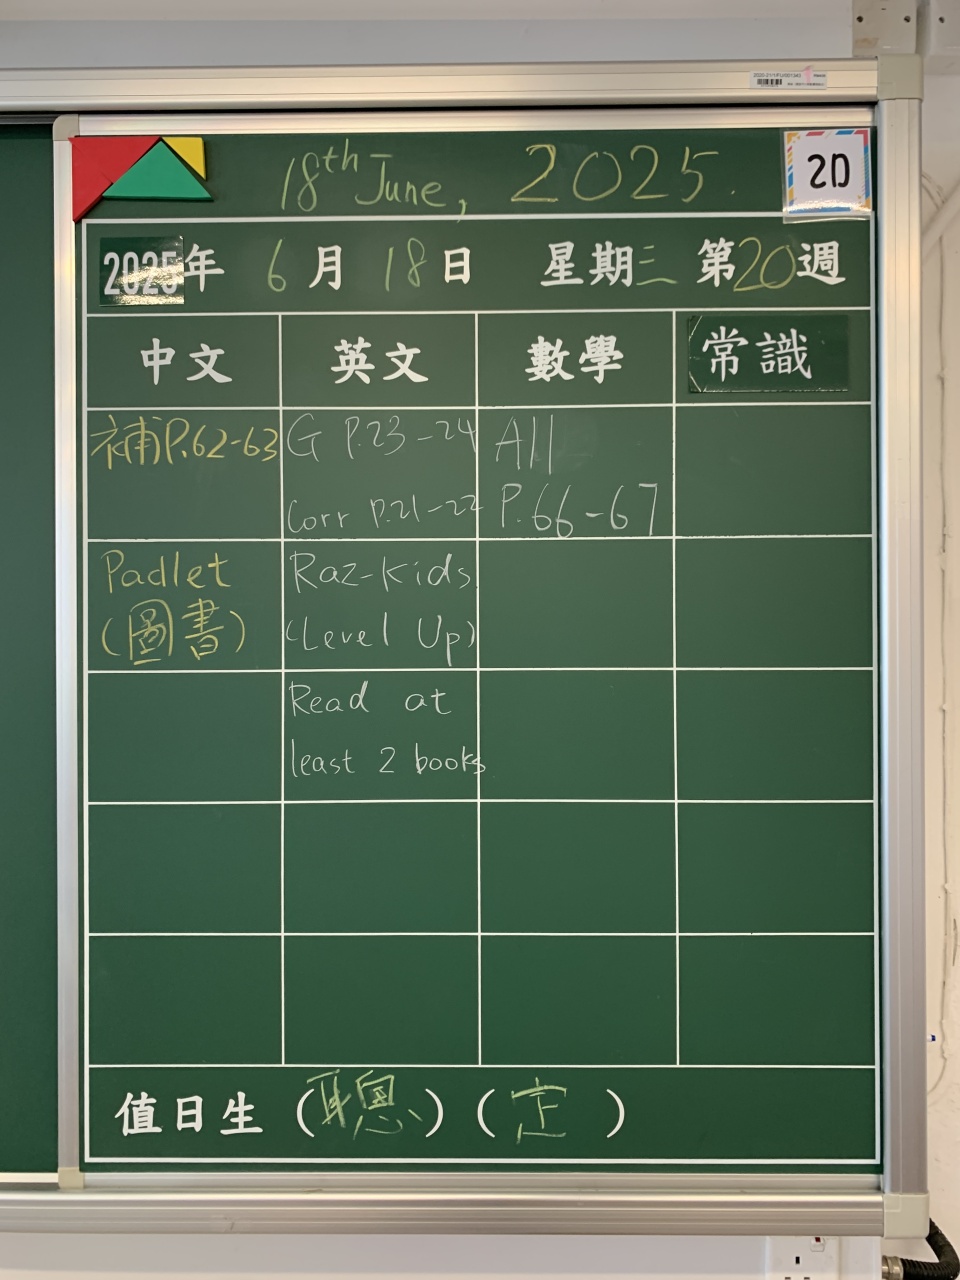 18th June, 2025.
2D
2025年 6月 18日 星期三 第20週
中文 英文 數學 常識
補P.62-63
G P.23-24
Corr P.21-22
All
P.66-67
Padlet
(圖書)
Raz-Kids
(Level Up)
Read at
least 2 books
值日生 (聰) (定)